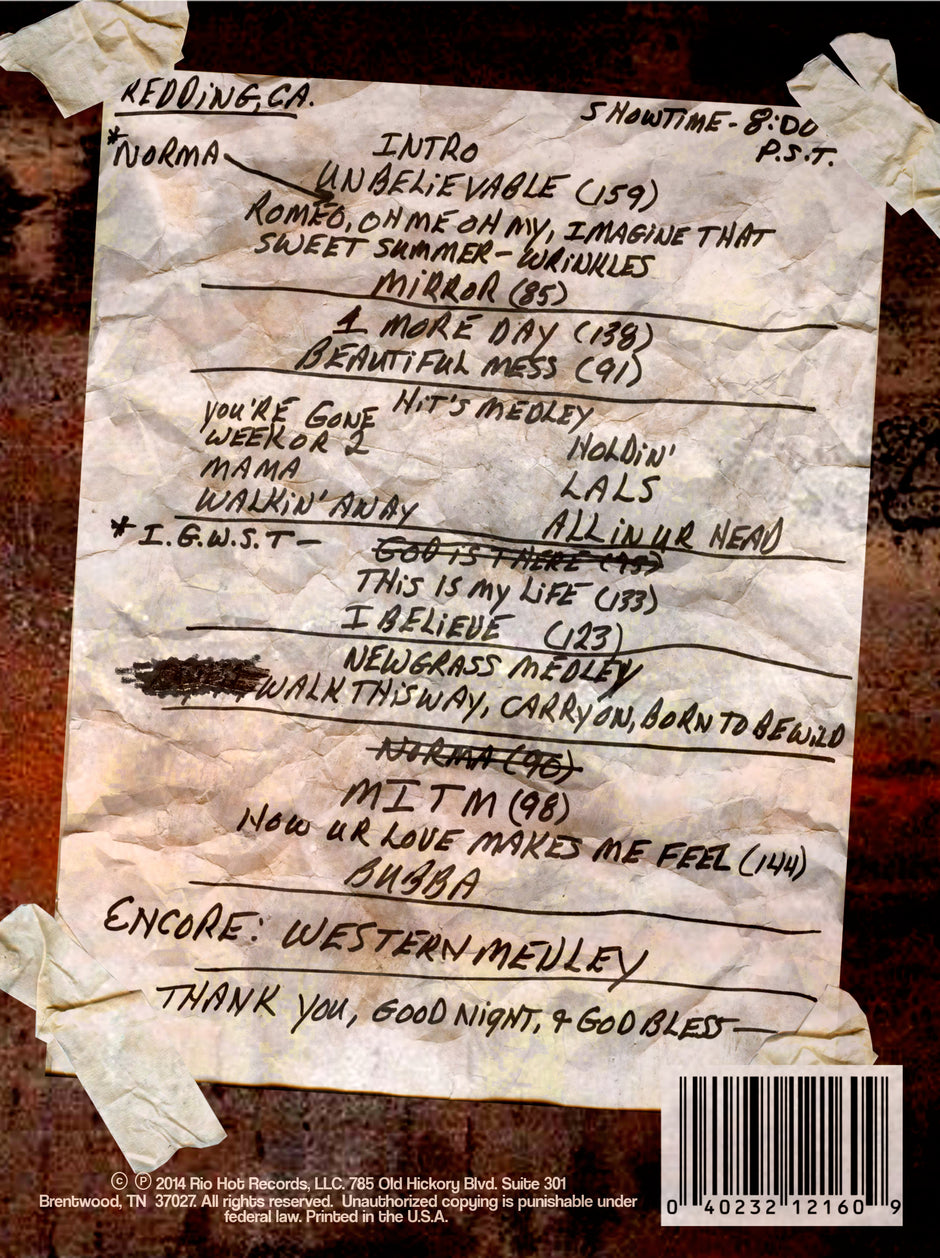 REDDING, CA.
SHOWTIME - 8:00
P.S.T.
*NORMA
INTRO
UNBELIEVABLE (159)
ROMEO, OH ME OH MY, IMAGINE THAT
SWEET SUMMER - WRINKLES
MIRROR (85)
1 MORE DAY (138)
BEAUTIFUL MESS (91)
HIT'S MEDLEY
YOU'RE GONE
WEEK OR 2
MAMA
WALKIN' AWAY
HOLDIN'
LALS
ALL IN UR HEAD
* I.G.W.S.T -
GOD IS THERE
THIS IS MY LIFE (133)
I BELIEVE (123)
NEWGRASS MEDLEY
WALK THIS WAY, CARRY ON, BORN TO BE WILD
NORMA (96)
MITM (98)
HOW UR LOVE MAKES ME FEEL (144)
BUBBA
ENCORE: WESTERN MEDLEY
THANK YOU, GOOD NIGHT, & GOD BLESS —
© ℗ 2014 Rio Hot Records, LLC. 785 Old Hickory Blvd. Suite 301
Brentwood, TN 37027. All rights reserved. Unauthorized copying is punishable under
federal law. Printed in the U.S.A.
0 40232 12160 9